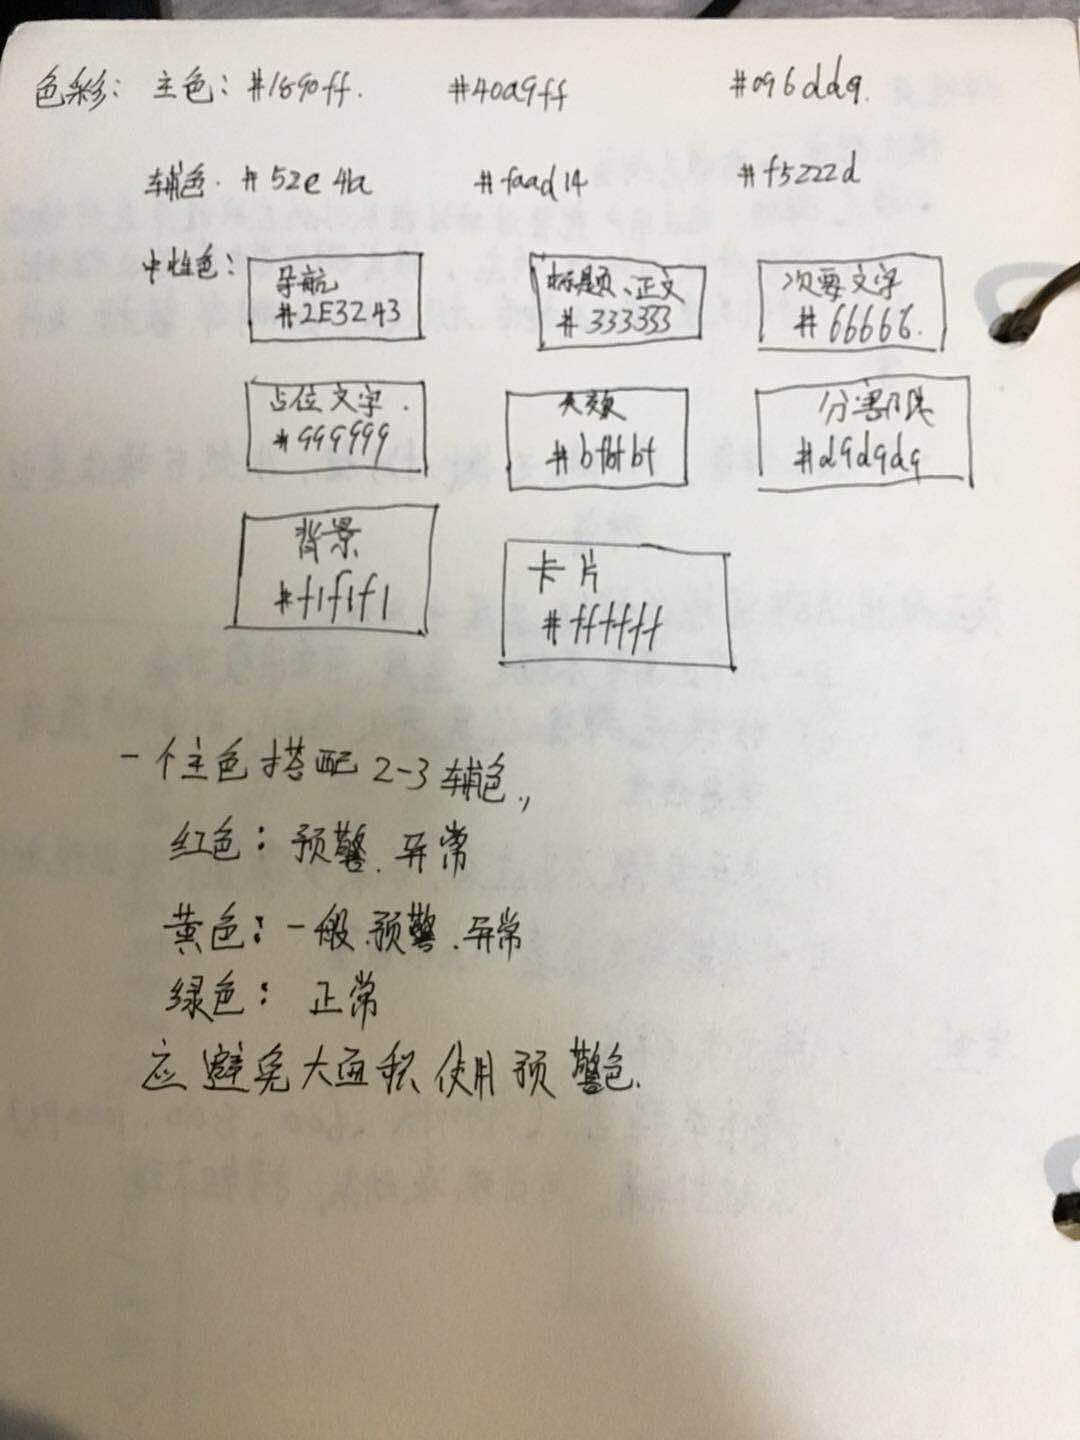 色彩: 主色: #1890ff. #40a9ff #096dd9.
辅色. #52e4a #faad14 #f5222d
中性色:
导航 标题、正文 次要文字
#2E3243 #333333 #66666.
占位文字. 失效 分割线
#999999 #bfbfbf #d9d9d9
背景 卡片
#f1f1f1 #ffffff
一个主色搭配2-3辅色.,
红色: 预警.异常
黄色: 一般.预警.异常
绿色: 正常
应避免大面积使用预警色.